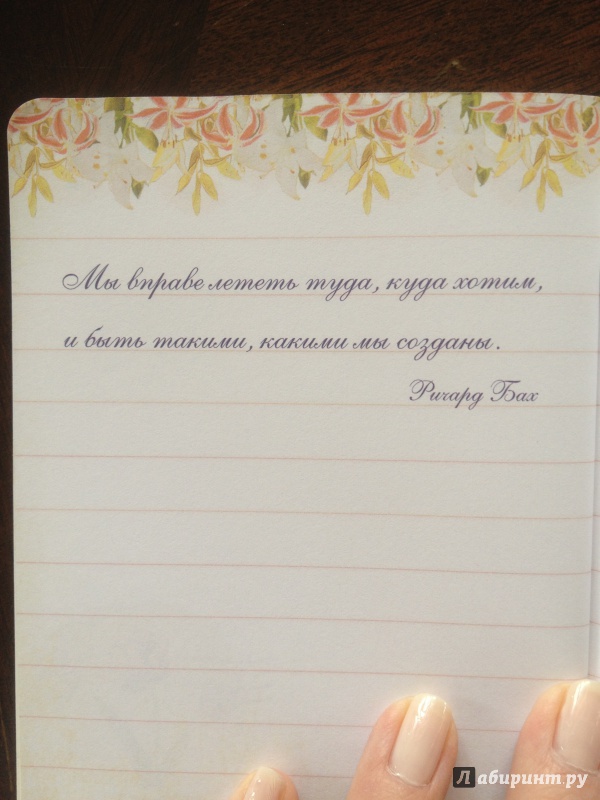 Мы вправе лететь туда, куда хотим,
и быть такими, какими мы созданы.
Ричард Бах
Лабиринт.ру